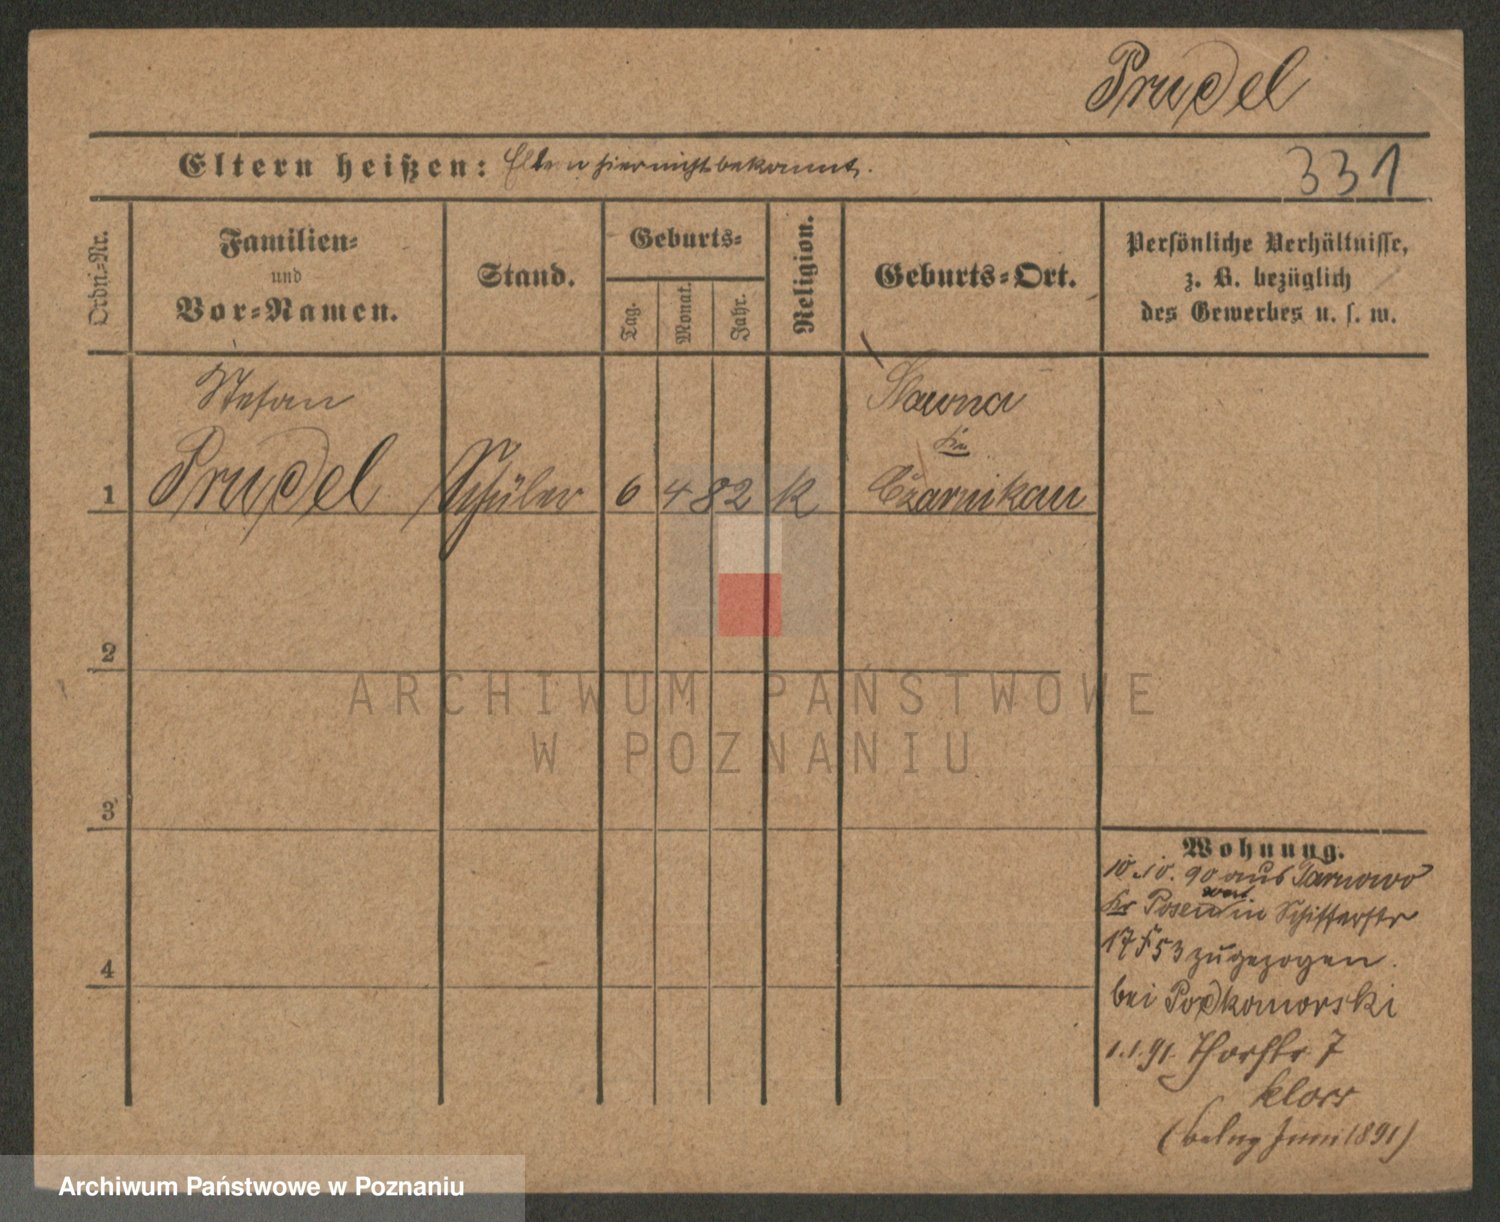 Prudel
Eltern heißen: Eltern hier nicht bekannt.
331
Ordn.-Nr.
Familien-
und
Vor-Namen.
Stand.
Geburts-
Tag.
Monat.
Jahr.
Religion.
Geburts-Ort.
Persönliche Verhältnisse,
z. B. bezüglich
des Gewerbes u. s. w.
Stefan
Prudel
Schüler
6 4 82 K
Slawna
Kr
Czarnikau
1
2
3
4
Wohnung.
10.10.90 aus Tarnowo
Kr Posen West in Schifferstr
17 53 zugezogen.
bei Podkomorski
1.1.91. Thorstr 7
(Juni 1891)
ARCHIWUM PAŃSTWOWE
W POZNANIU
Archiwum Państwowe w Poznaniu